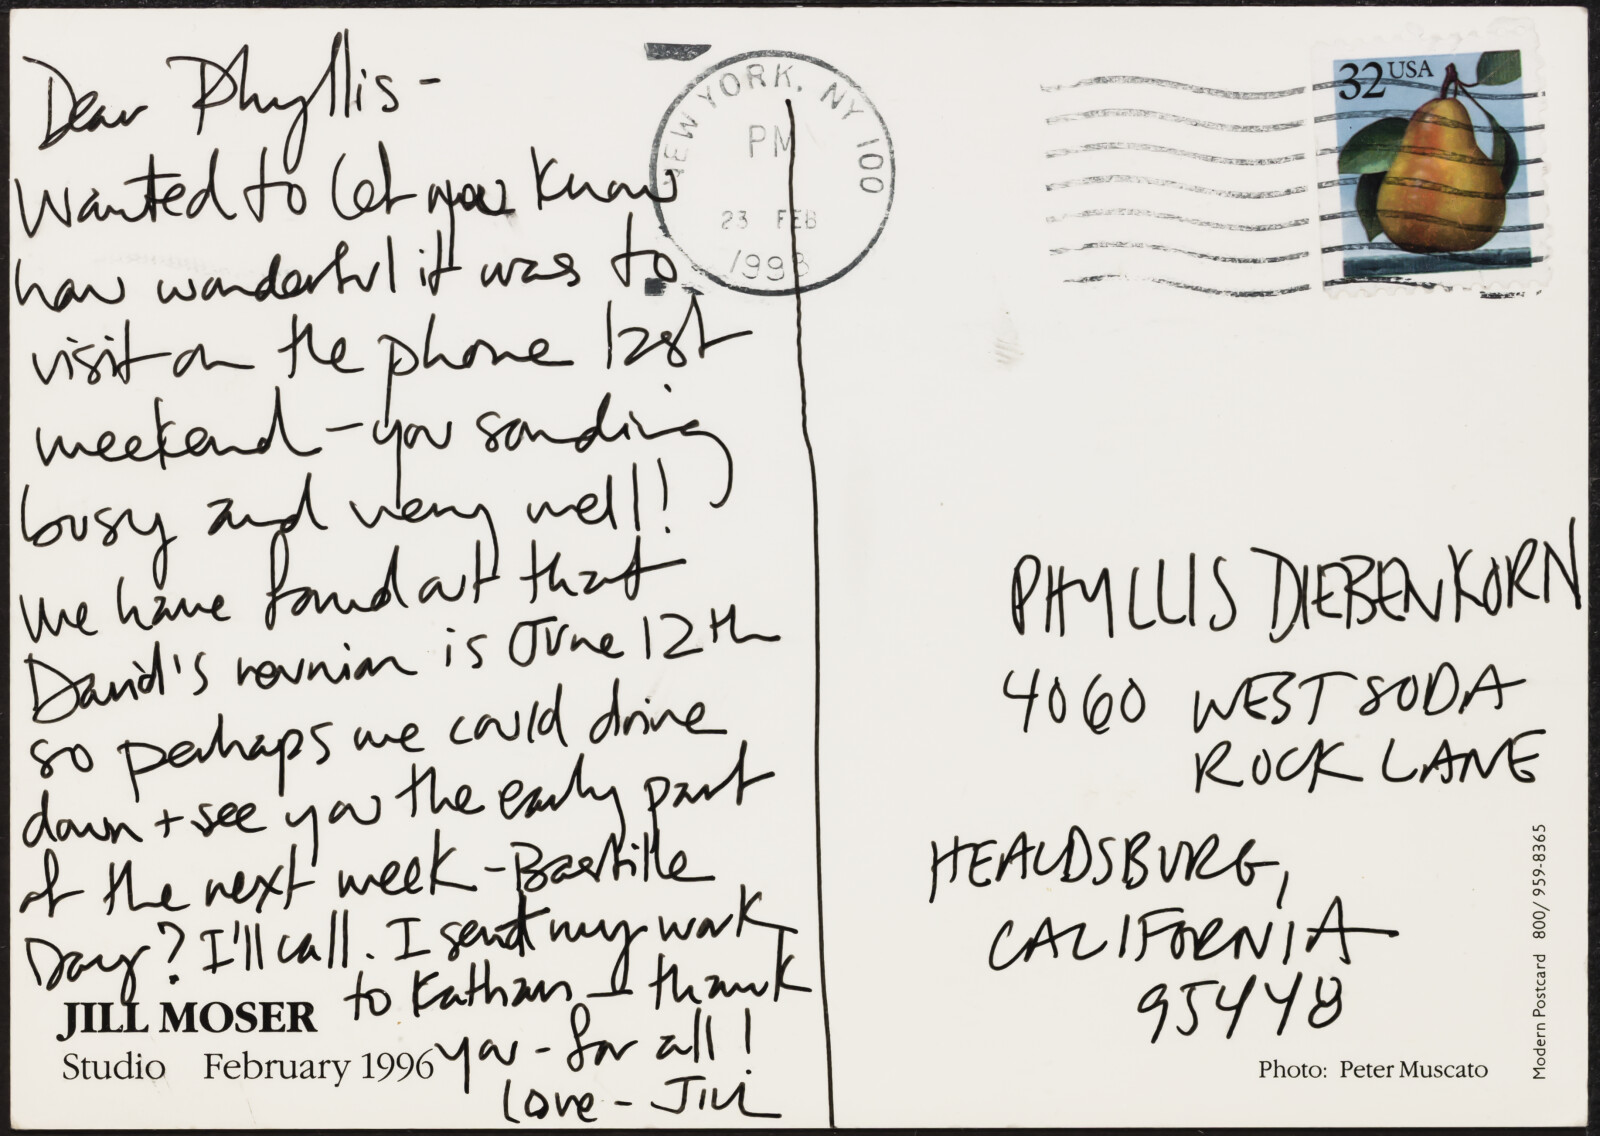 Dear Phyllis -
Wanted to let you know
how wonderful it was to
visit on the phone last
weekend - you sounding
busy and very well!
We have found out that
David's reunion is June 12th
so perhaps we could drive
down + see you the early part
of the next week - Bastille
Day? I'll call. I sent my work
to Kathan - thank
you - for all!
Love - Jill
JILL MOSER
Studio February 1996
NEW YORK, NY 100
PM
23 FEB
1998
32 USA
PHYLLIS DIEBENKORN
4060 WEST SODA
ROCK LANE
HEALDSBURG,
CALIFORNIA
95448
Photo: Peter Muscato
Modern Postcard 800/959-8365